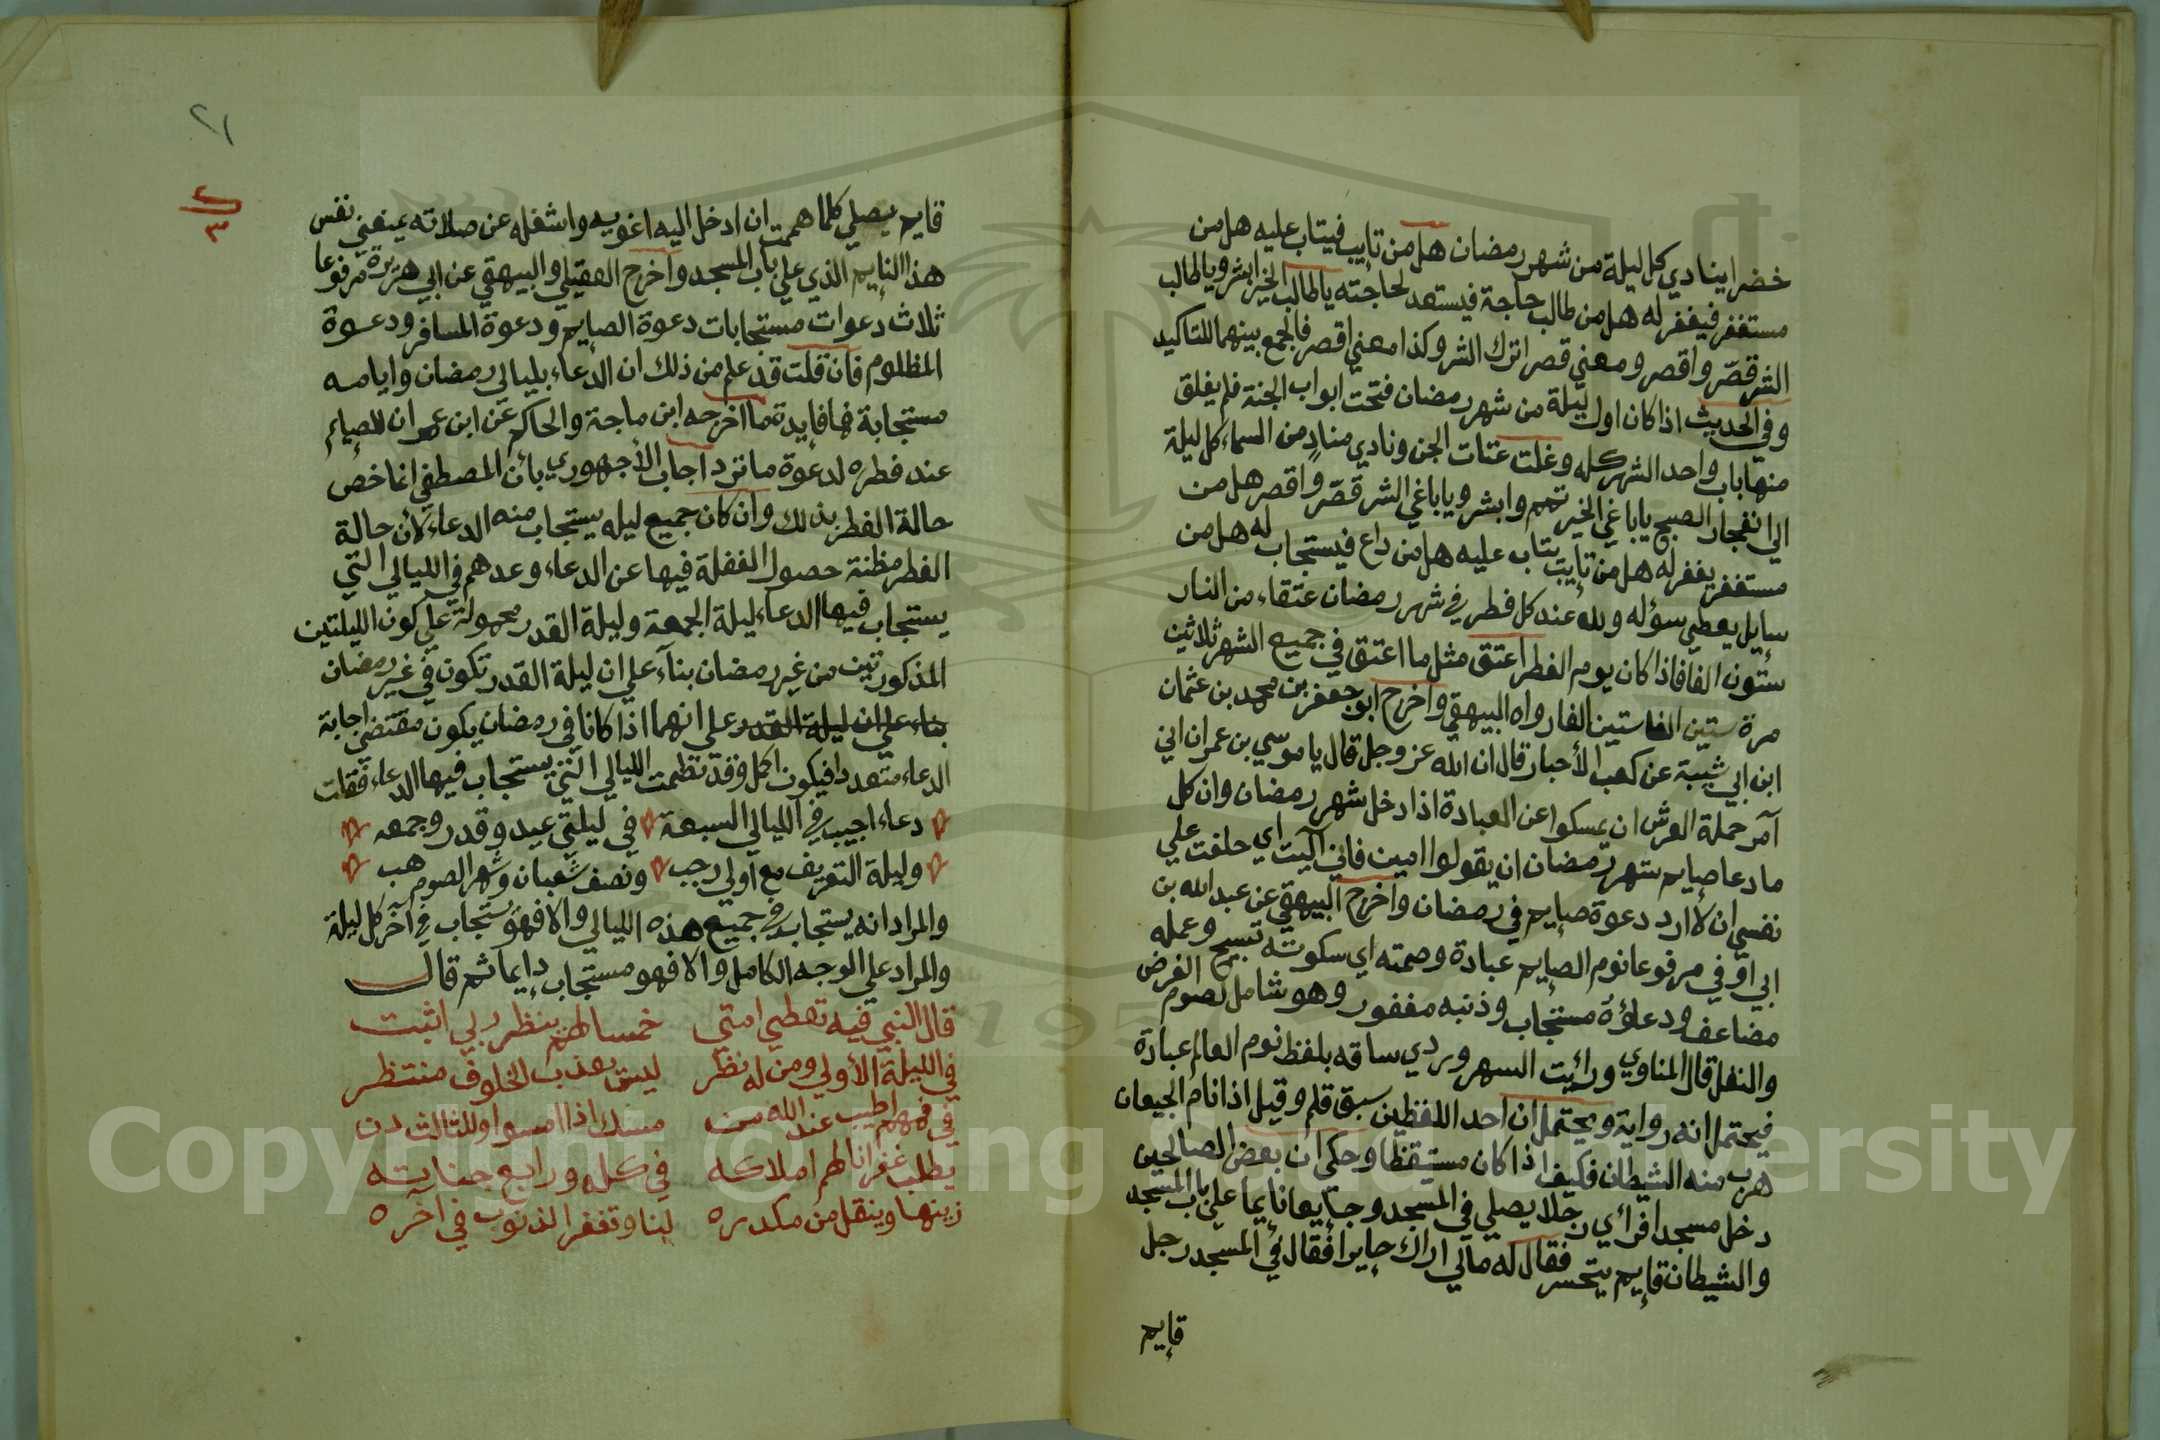 خضرا ينادي كل ليلة من شهر رمضان هل من تايب فيتاب عليه هل من
مستغفر فيغفر له هل من طالب حاجة فيستعد لحاجته يا طالب الخير ابشر ويا طالب
الشر قصّر واقصر ومعني قصر اترك الشر وكذا معني اقصر فالجمع بينهما للتاكيد
وفي الحديث اذا كان اول ليلة من شهر رمضان فتحت ابواب الجنة فلم يغلق
منها باب واحد الشهر كله وغلت عتات الجن ونادي منادٍ من السماء كل ليلة
الي انفجار الصبح يا باغي الخير تمم وابشر ويا باغي الشر قصّر واقصر هل من
مستغفر يغفر له هل من تايب يتاب عليه هل من داع فيستجاب له هل من
سايل يعطي سؤله ولله عند كل فطر في شهر رمضان عتقاء من النار
ستون الفا فاذا كان يوم الفطر اعتق مثل ما اعتق في جميع الشهر ثلاثين
مرة ستين الفا ستين الفا رواه البيهقي واخرج ابو جعفر بن محمد بن عثمان
ابن ابي شيبة عن كعب الأحبار قال ان الله عز وجل قال يا موسي بن عمران اني
آمر حملة العرش ان يمسكوا عن العبادة اذا دخل شهر رمضان وان كل
ما دعا صايم شهر رمضان ان يقولوا امين فاني آليت اي حلفت علي
نفسي ان لا ارد دعوة صايم في رمضان واخرج البيهقي عن عبد الله بن
ابي اوفي مرفوعا نوم الصايم عبادة وصمته اي سكوته تسبيح وعمله
مضاعف ودعاؤه مستجاب وذنبه مغفور وهو شامل لصوم الفرض
والنفل قال المناوي ورأيت السهروردي ساقه بلفظ نوم العالم عبادة
فيحتمل انه رواية ويحتمل ان احد اللفظين سبق قلم وقيل اذا نام الجيعان
هرب منه الشيطان فكيف اذا كان مستيقظا وحكي ان بعض الصالحين
دخل مسجدا فرائي رجلا يصلي في المسجد وجايعا نايما علي باب المسجد
والشيطان قايم يتحسر فقال له مالي اراك حايرا فقال في المسجد رجل
قايم
٢١
قايم يصلي كلما هممت ان ادخل اليه اغويه واشغله عن صلاته يمنعني نفس
هذا النايم الذي علي باب المسجد واخرج العقيلي والبيهقي عن ابي هريرة مرفوعا
ثلاث دعوات مستجابات دعوة الصايم ودعوة المسافر ودعوة
المظلوم فان قلت قد علم من ذلك ان الدعاء بليالي رمضان وايامه
مستجابة فما فايدة ما اخرجه ابن ماجة والحاكم عن ابن عمر ان للصايم
عند فطره لدعوة ما ترد اجاب الأجهوري بأن المصطفي انما خص
حالة الفطر بذلك وان كان جميع ليله يستجاب منه الدعاء لأن حالة
الفطر مظنة حصول الغفلة فيها عن الدعاء وعدهم في الليالي التي
يستجاب فيها الدعاء ليلة الجمعة وليلة القدر محمولة علي كون الليلتين
المذكورتين من غير رمضان بناء علي ان ليلة القدر تكون في غير رمضان
بناء علي ان ليلة القدر علي انهما اذا كانا في رمضان يكون مقتضي اجابة
الدعاء متعددا فيكون اكمل وقد نظمت الليالي التي يستجاب فيها الدعاء فقلت
دعاء اجيب في الليالي السبعة في ليلتي عيد وقدر وجمعه
وليلة التعريف مع اولي رجب ونصف شعبان وشهر الصوم هب
والمراد انه يستجاب في جميع هذه الليالي والا فهو يستجاب في آخر كل ليلة
والمراد علي الوجه الكامل والا فهو مستجاب دايما ثم قال
قال النبي فيه تعطي امتي خمسا لهم ينظر ربي اثبت
في الليلة الأولي ومن له نظر ليس يعذب الخلوف منتظر
في فمهم اطيب عند الله من مسك اذا امسوا وللثالث دن
يطلب غفرانا لهم املاكه في كله ورابع جنايته
زينها وينقل من مكدره لبنا وتغفر الذنوب في آخره